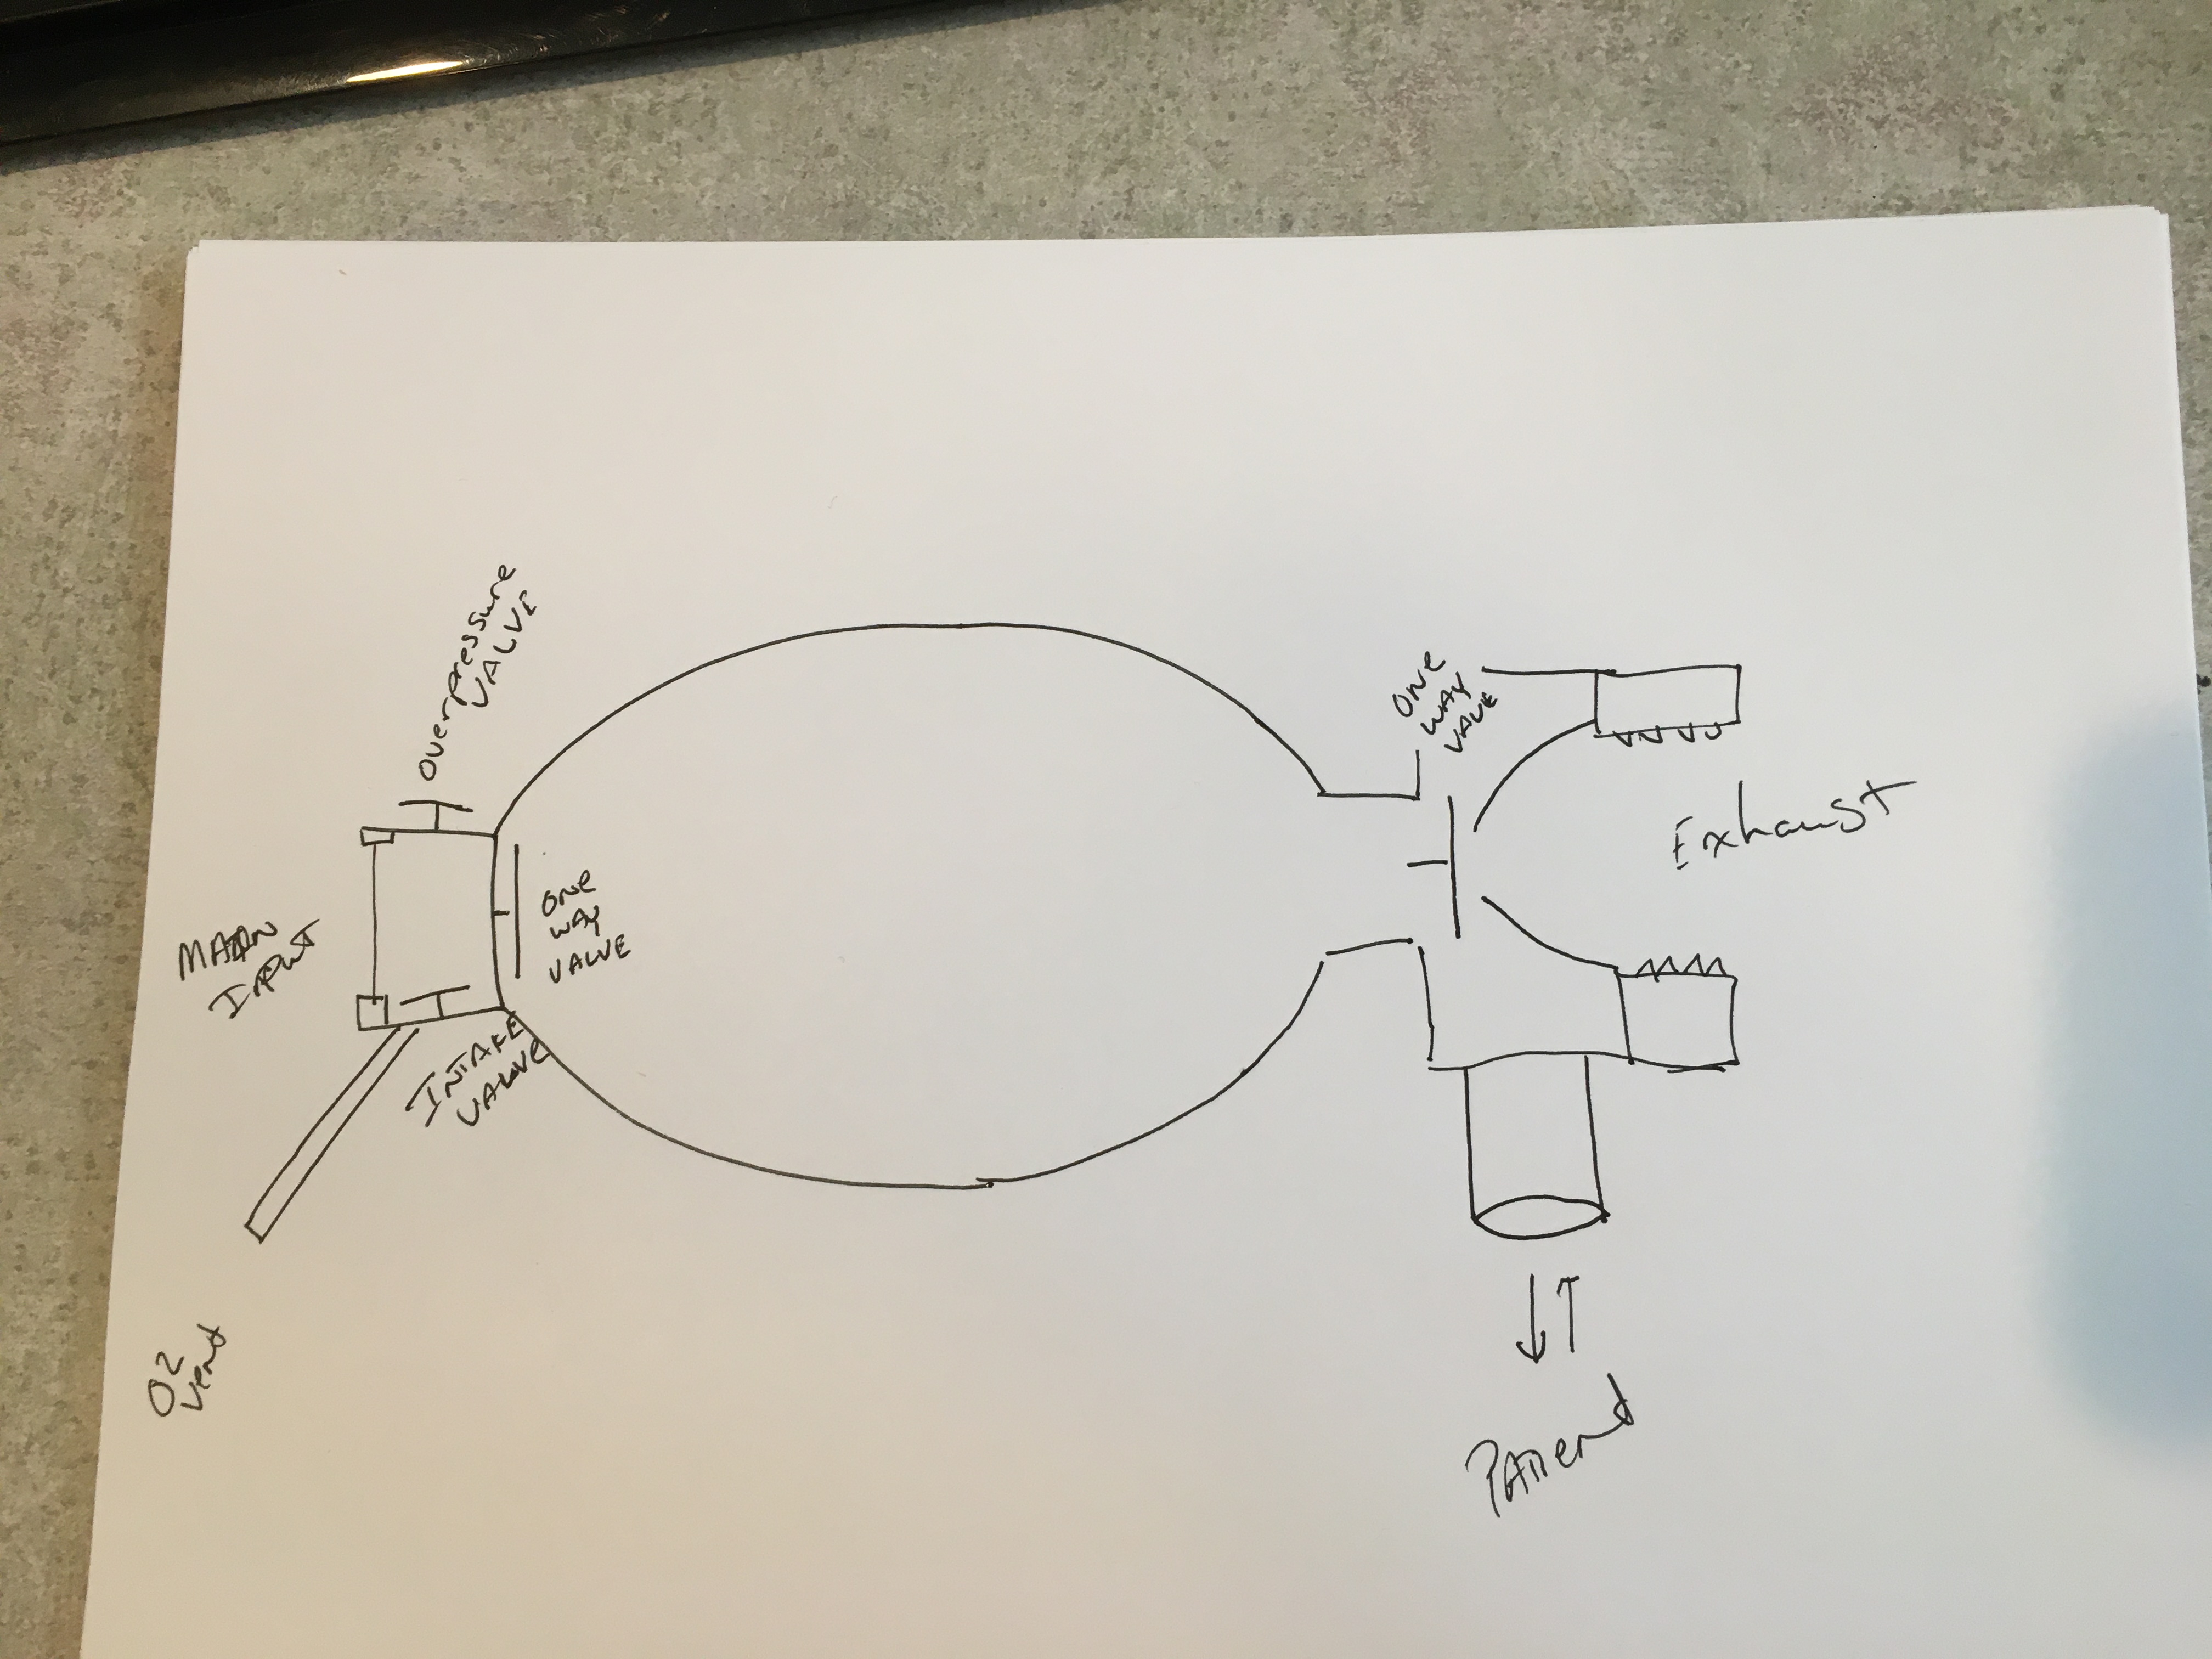 O2
Vent
MAIN
INPUT
INTAKE
VALVE
Overpressure
VALVE
One
WAY
VALVE
One
WAY
VALVE
PATIENT
Exhaust